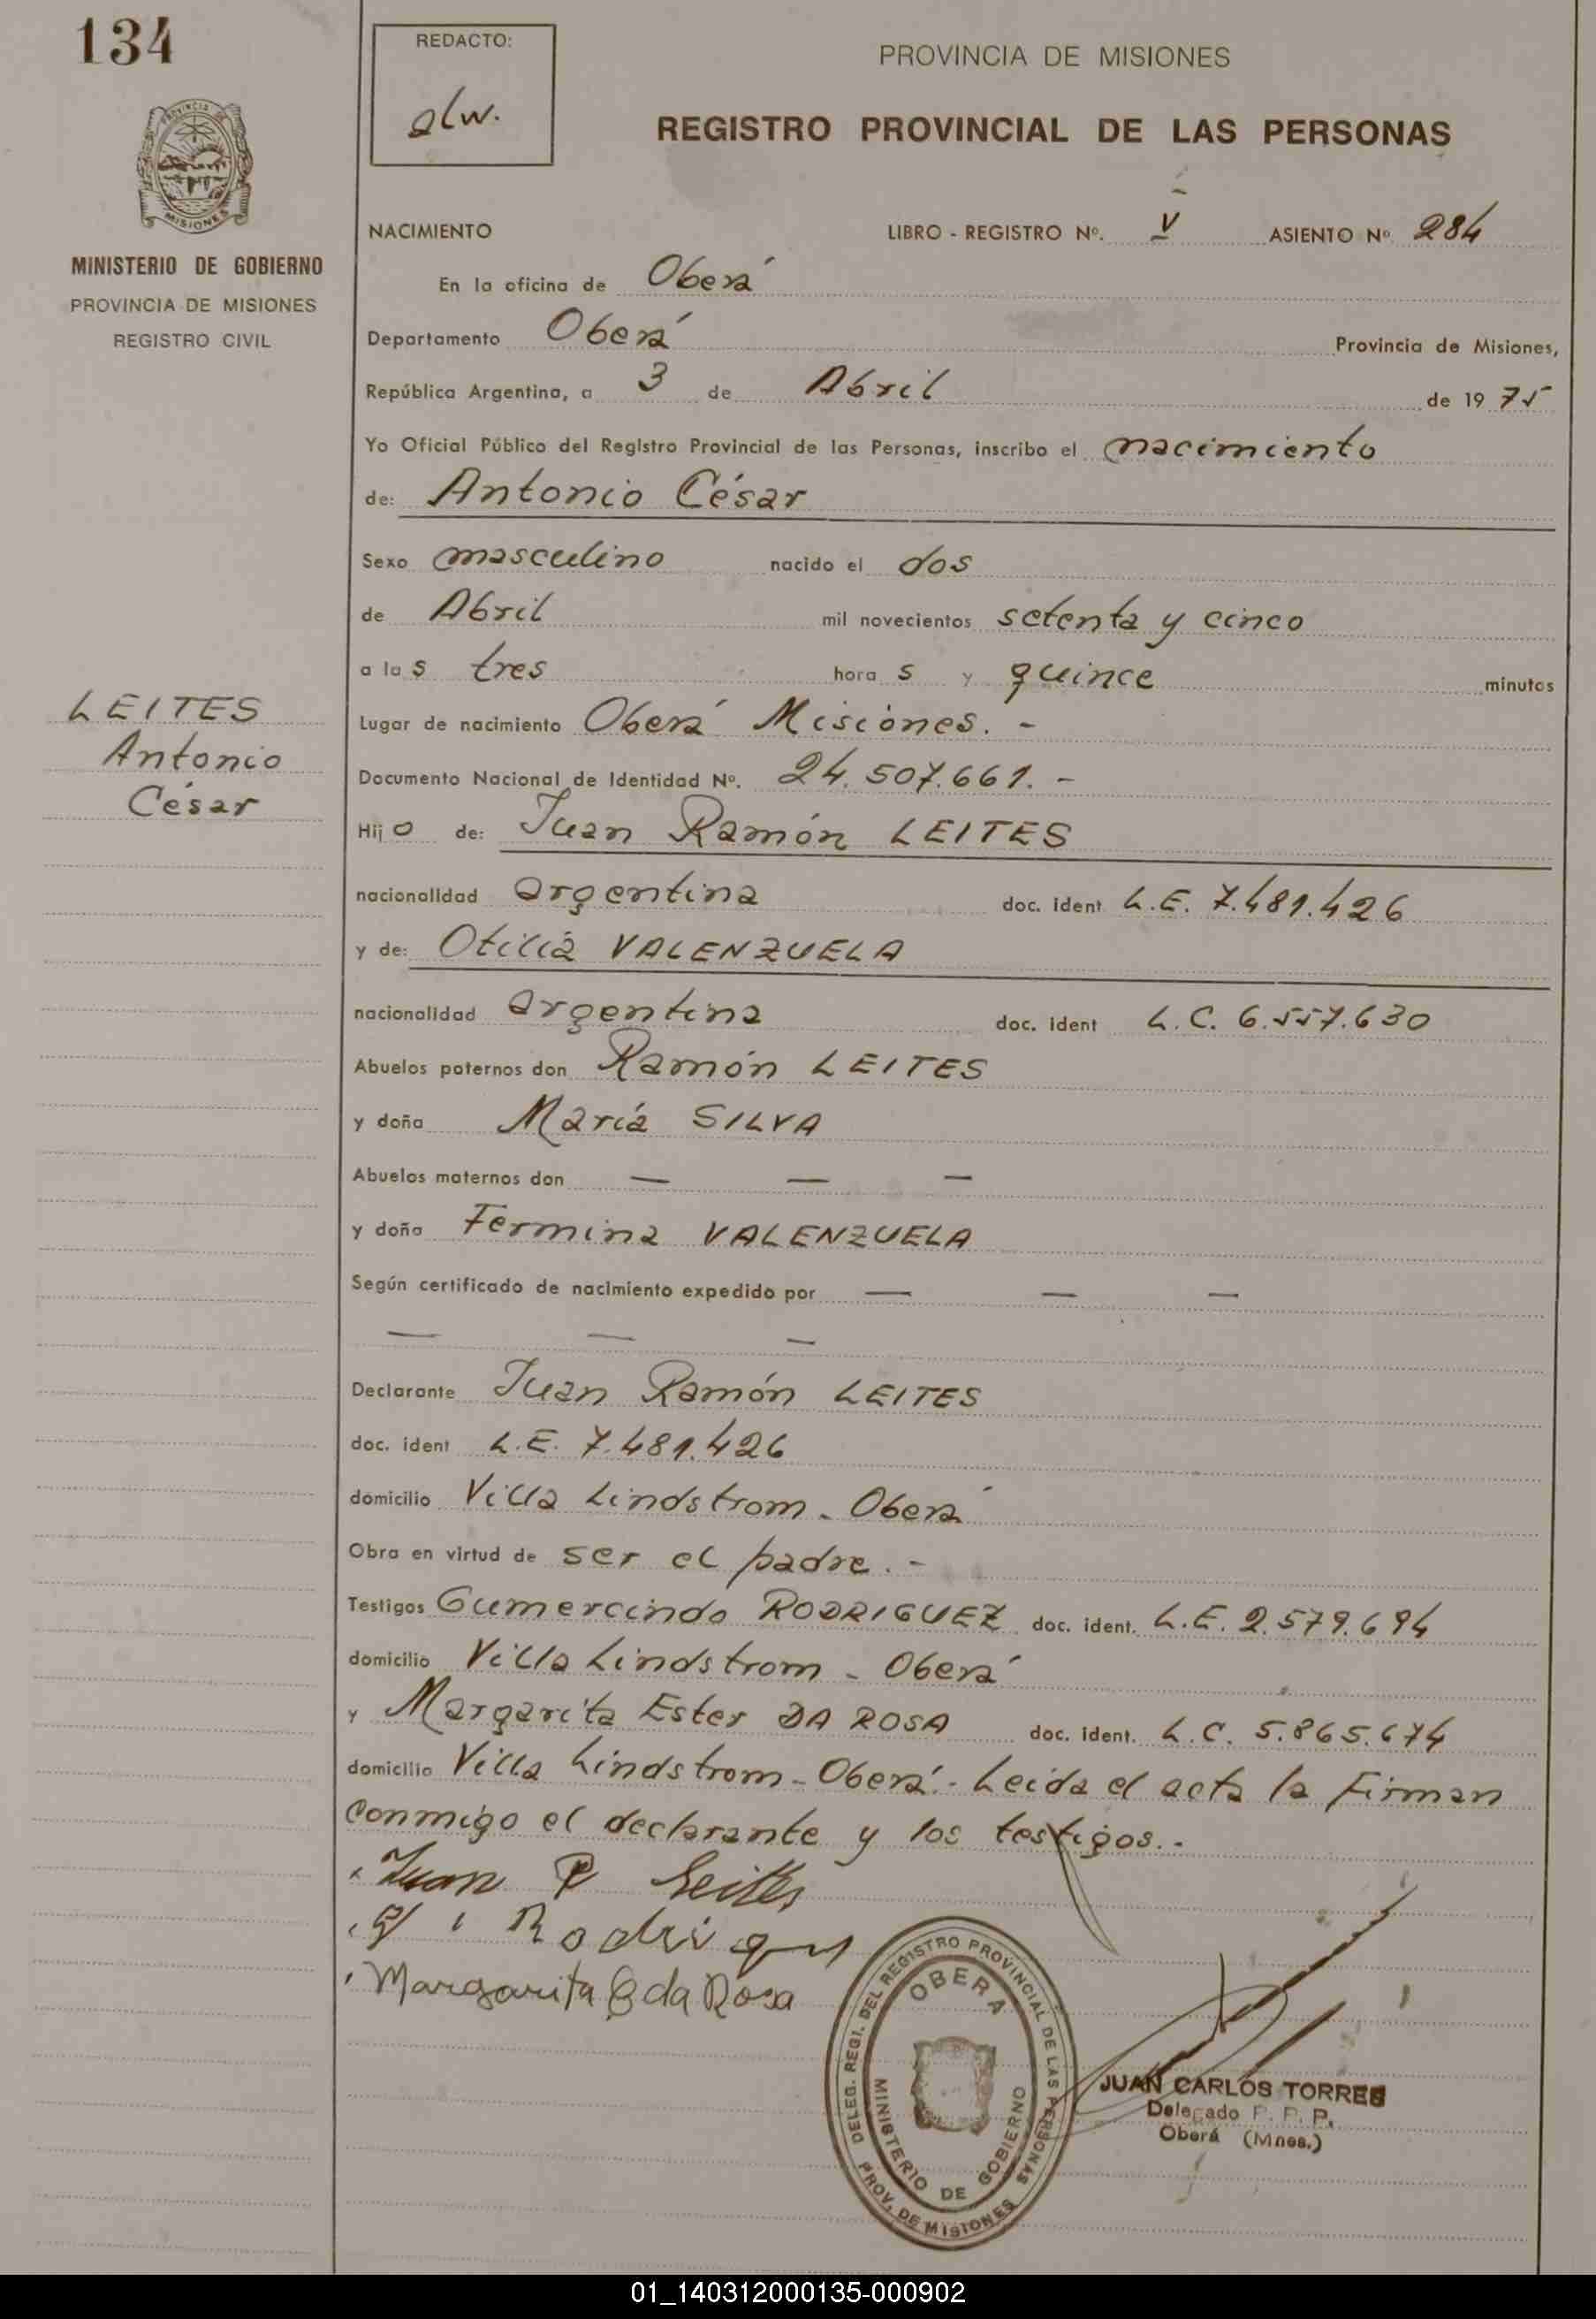 134
REDACTO:
PROVINCIA DE MISIONES
alw.
REGISTRO PROVINCIAL DE LAS PERSONAS
PROVINCIA DE
MISIONES
MINISTERIO DE GOBIERNO
PROVINCIA DE MISIONES
REGISTRO CIVIL
NACIMIENTO LIBRO - REGISTRO Nº. V ASIENTO Nº 284
En la oficina de Oberá
Departamento Oberá Provincia de Misiones,
República Argentina, a 3 de Abril de 19 75
Yo Oficial Público del Registro Provincial de las Personas, inscribo el nacimiento
de: Antonio César
Sexo masculino nacido el dos
de Abril mil novecientos setenta y cinco
a las tres horas y quince minutos
LEITES
Antonio
César
Lugar de nacimiento Oberá Misiones. -
Documento Nacional de Identidad Nº. 24.507.661. -
Hijo de: Juan Ramón LEITES
nacionalidad argentina doc. ident L.E. 7.481.426
y de: Otilia VALENZUELA
nacionalidad argentina doc. ident L.C. 6.557.630
Abuelos paternos don Ramón LEITES
y doña María SILVA
Abuelos maternos don — — —
y doña Fermina VALENZUELA
Según certificado de nacimiento expedido por — — —
— — —
Declarante Juan Ramón LEITES
doc. ident L.E. 7.481.426
domicilio Villa Lindstrom - Oberá
Obra en virtud de ser el padre. -
Testigos Gumercindo RODRIGUEZ doc. ident. L.E. 2.579.694
domicilio Villa Lindstrom - Oberá
y Margarita Ester DA ROSA doc. ident. L.C. 5.865.674
domicilio Villa Lindstrom - Oberá. - Leída el acta la firman
conmigo el declarante y los testigos. -
Juan R Leites
G Rodrigue
Margarita E da Rosa
DELEG. REGI. DEL REGISTRO PROVINCIAL DE LAS PERSONAS
OBERA
MINISTERIO DE GOBIERNO
PROV. DE MISIONES
JUAN CARLOS TORRES
Delegado R. P. P.
Oberá (Mnes.)
01_140312000135-000902